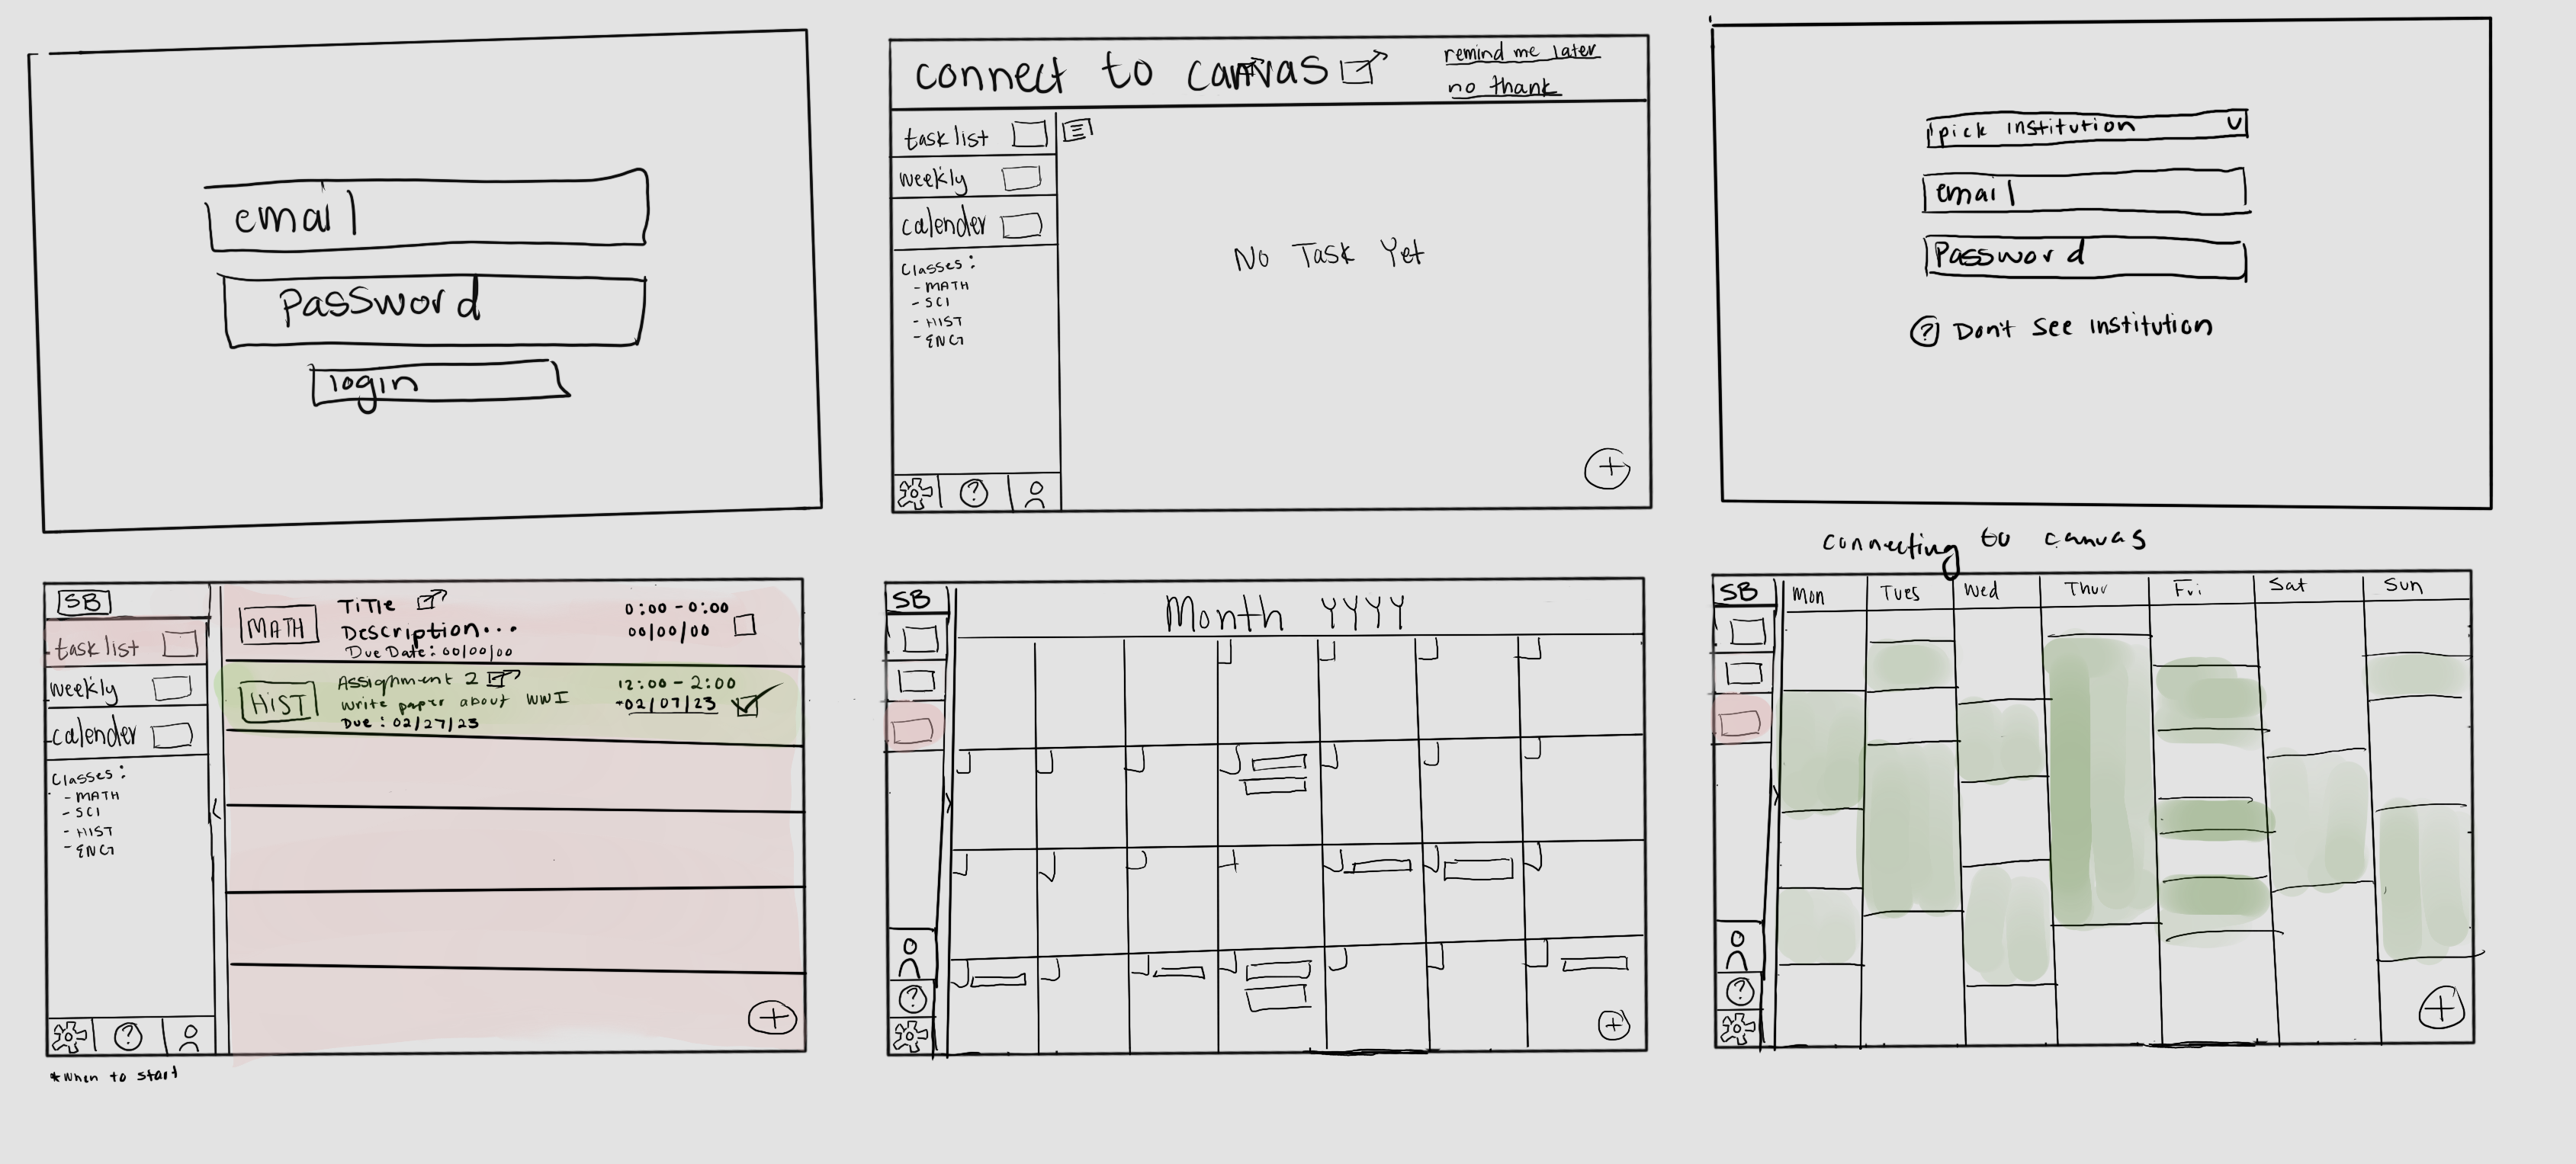 email
password
login
connect to canvas
remind me later
no thank
task list
weekly
calender
classes:
- MATH
- SCI
- HIST
- ENG
No Task Yet
pick institution
email
Password
? Don't see institution
connecting to canvas
SB
task list
weekly
calender
classes:
- MATH
- SCI
- HIST
- ENG
MATH
TiTle
Description...
Due Date: 00/00/00
0:00 - 0:00
00/00/00
HiST
Assignment 2
write paper about WWI
Due: 02/27/23
12:00 - 2:00
*02/07/23
*when to start
SB
Month YYYY
SB
Mon Tues Wed Thur Fri Sat Sun